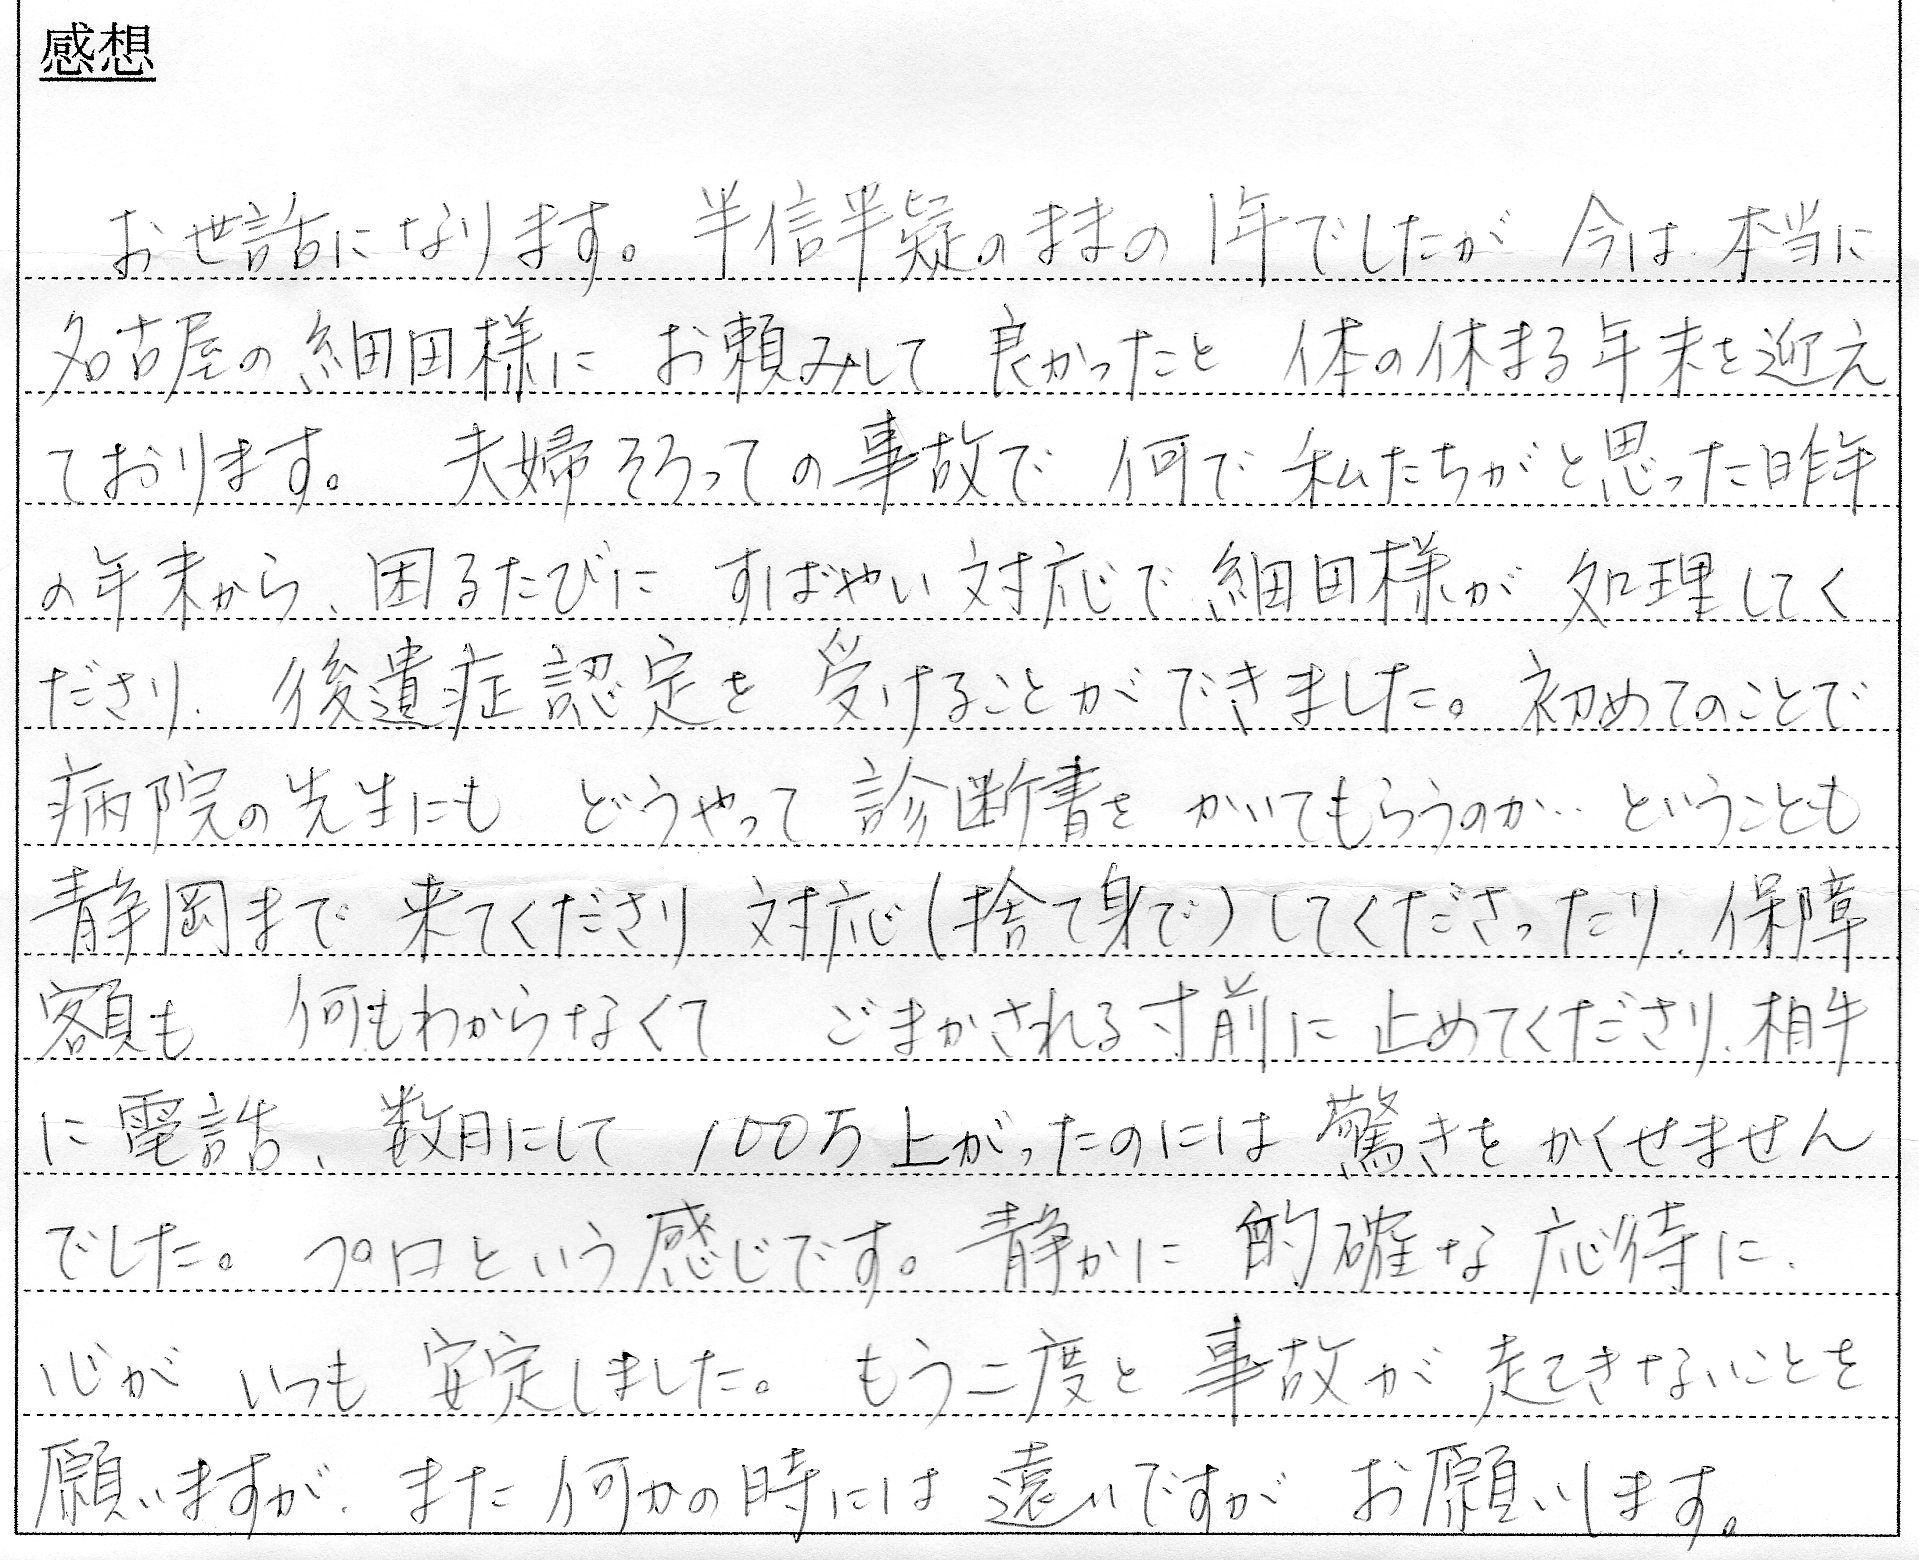 感想
お世話になります。半信半疑のままの1年でしたが 今は、本当に
名古屋の細田様に お頼みして 良かったと 体の休まる年末を迎え
ております。 夫婦そろっての事故で 何で 私たちがと思った昨年
の年末から、困るたびに すばやい対応で 細田様が 処理してく
ださり、後遺症認定を 受けることができました。初めてのことで
病院の先生にも どうやって 診断書を かいてもらうのか‥ということも
静岡まで 来てくださり 対応(捨て身で)してくださったり、保障
額も 何もわからなくて ごまかされる寸前に 止めてくださり、相手
に電話、数日にして 100万上がったのには 驚きを かくせません
でした。プロという感じです。静かに 的確な 応待に、
心が いつも 安定しました。もう二度と 事故が 起きないことを
願いますが、また 何かの時には 遠いですが お願いします。